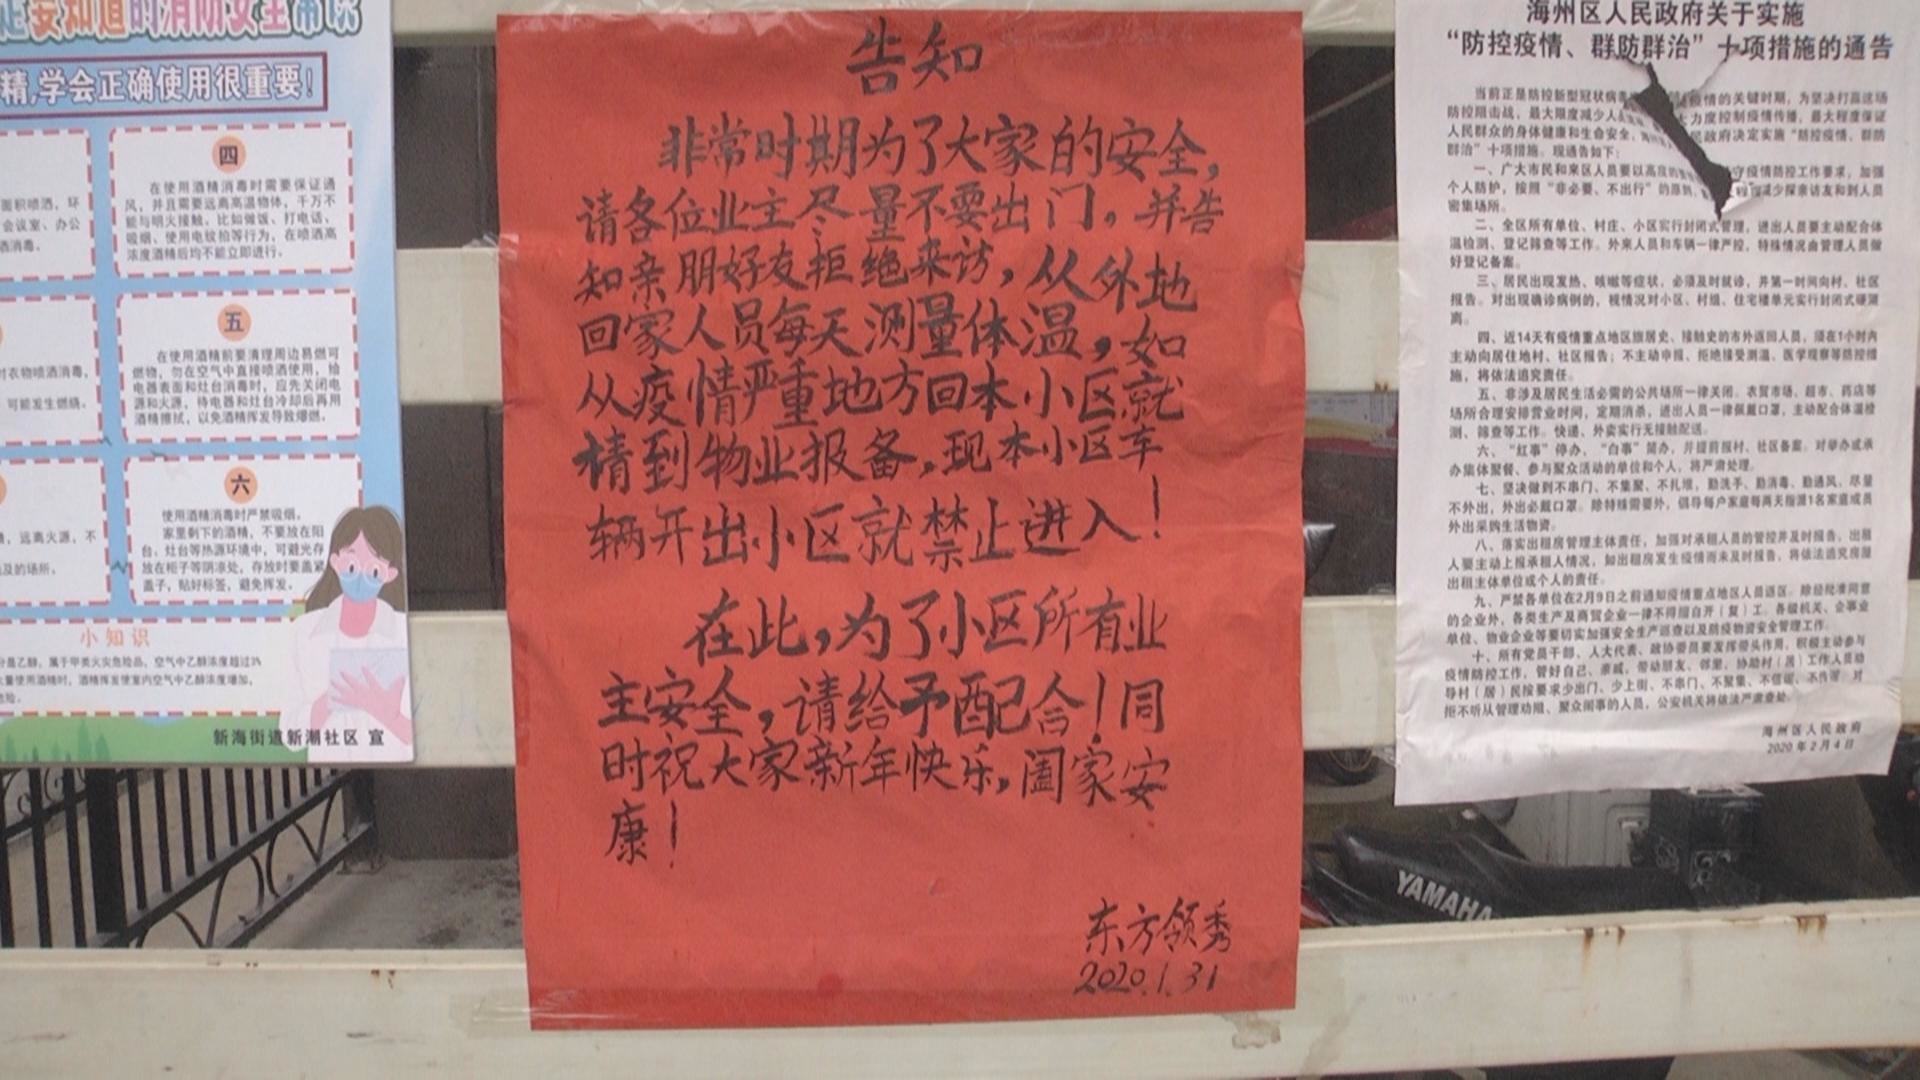 要知道的消防安全常识
精,学会正确使用很重要!
面积喷洒,环
会议室、办公
酒消毒。
对衣物喷洒消毒,
可能发生燃烧。
远离火源,不
及的场所。
四
在使用酒精消毒时需要保证通
风,并且需要远离高温物体,千万不
能与明火接触,比如做饭、打电话、
吸烟、使用电蚊拍等行为,在喷洒高
浓度酒精后均不能立即进行。
五
在使用酒精前要清理周边易燃可
燃物,勿在空气中直接喷洒使用,给
电器表面和灶台消毒时,应先关闭电
源和火源,待电器和灶台冷却后再用
酒精擦拭,以免酒精挥发导致爆燃。
六
使用酒精消毒时严禁吸烟。
家里剩下的酒精,不要放在阳
台、灶台等热源环境中,可避光存
放在柜子等阴凉处,存放时要盖紧
盖子,贴好标签,避免挥发。
小知识
分是乙醇,属于甲类火灾危险品,空气中乙醇浓度超过3%
大量使用酒精时,酒精挥发使室内空气中乙醇浓度增加,
危险。
新海街道新潮社区 宣
告知
非常时期为了大家的安全,
请各位业主尽量不要出门,并告
知亲朋好友拒绝来访,从外地
回家人员每天测量体温,如
从疫情严重地方回本小区就
请到物业报备,现本小区车
辆开出小区就禁止进入!
在此,为了小区所有业
主安全,请给予配合!同
时祝大家新年快乐,阖家安
康!
东方领秀
2020.1.31
海州区人民政府关于实施
“防控疫情、群防群治”十项措施的通告
当前正是防控新型冠状病毒 疫情的关键时期,为坚决打赢这场
防控阻击战,最大限度减少人员 大力度控制疫情传播,最大程度保证
人民群众的身体健康和生命安全, 民政府决定实施“防控疫情、群防
群治”十项措施。现通告如下:
一、广大市民和来区人员要以高度的 守疫情防控工作要求,加强
个人防护,按照“非必要、不出行”的原则, 减少探亲访友和到人员
密集场所。
二、全区所有单位、村庄、小区实行封闭式管理,进出人员要主动配合体
温检测、登记筛查等工作。外来人员和车辆一律严控,特殊情况由管理人员做
好登记备案。
三、居民出现发热、咳嗽等症状,必须及时就诊,并第一时间向村、社区
报告。对出现确诊病例的,视情况对小区、村组、住宅楼单元实行封闭式硬隔
离。
四、近14天有疫情重点地区旅居史、接触史的市外返回人员,须在1小时内
主动向居住地村、社区报告;不主动申报、拒绝接受测温、医学观察等防控措
施,将依法追究责任。
五、非涉及居民生活必需的公共场所一律关闭。农贸市场、超市、药店等
场所合理安排营业时间,定期消杀,进出人员一律佩戴口罩,主动配合体温检
测、筛查等工作。快递、外卖实行无接触配送。
六、“红事”停办,“白事”简办,并提前报村、社区备案。对举办或承
办集体聚餐、参与聚众活动的单位和个人,将严肃处理。
七、坚决做到不串门、不集聚、不扎堆,勤洗手、勤消毒、勤通风,尽量
不外出,外出必戴口罩。除特殊需要外,倡导每户家庭每两天指派1名家庭成员
外出采购生活物资。
八、落实出租房管理主体责任,加强对承租人员的管控并及时报告,出租
人要主动上报承租人情况,如出租房发生疫情而未及时报告,将依法追究房屋
出租主体单位或个人的责任。
九、严禁各单位在2月9日之前通知疫情重点地区人员返区。除经批准同意
的企业外,各类生产及商贸企业一律不得擅自开(复)工。各级机关、企事业
单位、物业企业等要切实加强安全生产巡查以及防疫物资安全管理工作。
十、所有党员干部、人大代表、政协委员要发挥带头作用,积极主动参与
疫情防控工作,管好自己、亲戚,带动朋友、邻里,协助村(居)工作人员劝
导村(居)民按要求少出门、少上街、不串门、不聚集、不信谣、不传谣,对
拒不听从管理劝阻、聚众闹事的人员,公安机关将依法严肃查处。
海州区人民政府
2020年2月4日
YAMAHA